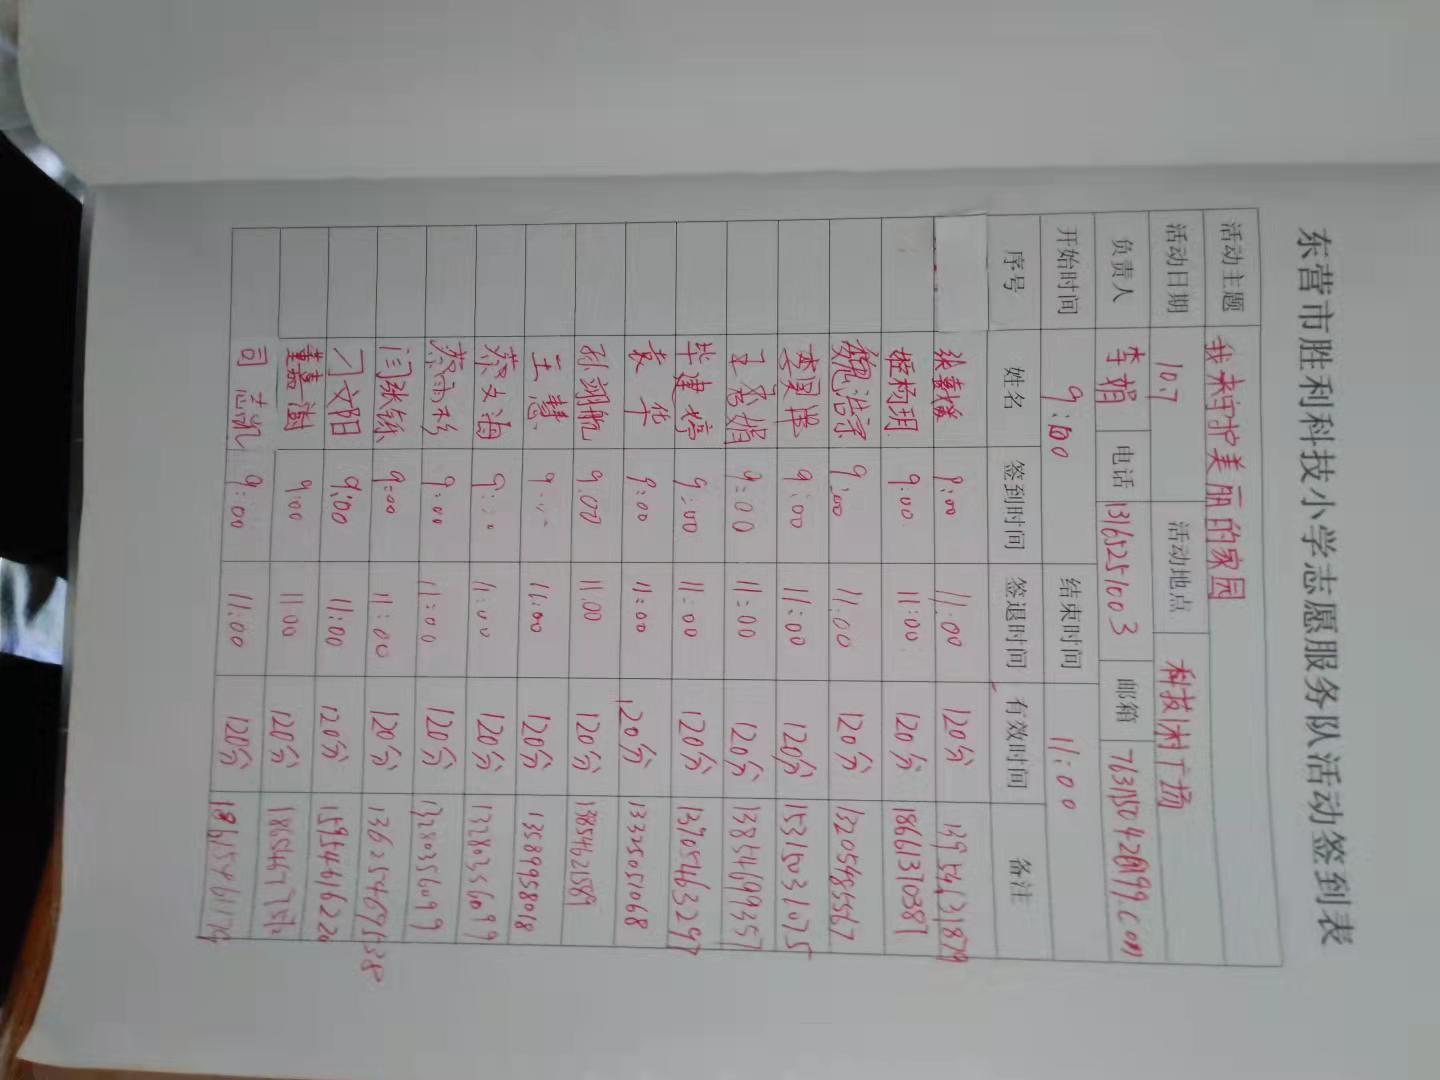 东营市胜利科技小学志愿服务队活动签到表
活动主题 我来守护美丽的家园
活动日期 10.7 活动地点 科技村广场
负责人 李娟 电话 13165251003 邮箱
开始时间 9:00 结束时间 11:00
序号 姓名 签到时间 签退时间 有效时间 备注
9:00 11:00 120分
姬杨玥 9:00 11:00 120分 18661370387
魏浩宗 9:00 11:00 120分 13205485567
9:00 11:00 120分 15315031075
9:00 11:00 120分 13854699357
毕建婷 9:00 11:00 120分 13705463297
袁华 9:00 11:00 120分 13325051068
孙翊航 9:00 11:00 120分 13854621589
王慧 9:00 11:00 120分 13589958018
蔡文涵 9:00 11:00 120分 13280356099
蔡雨彤 9:00 11:00 120分 13280356099
闫张铄 9:00 11:00 120分
刁文阳 9:00 11:00 120分 15954461622
董嘉澍 9:00 11:00 120分
司志凯 9:00 11:00 120分